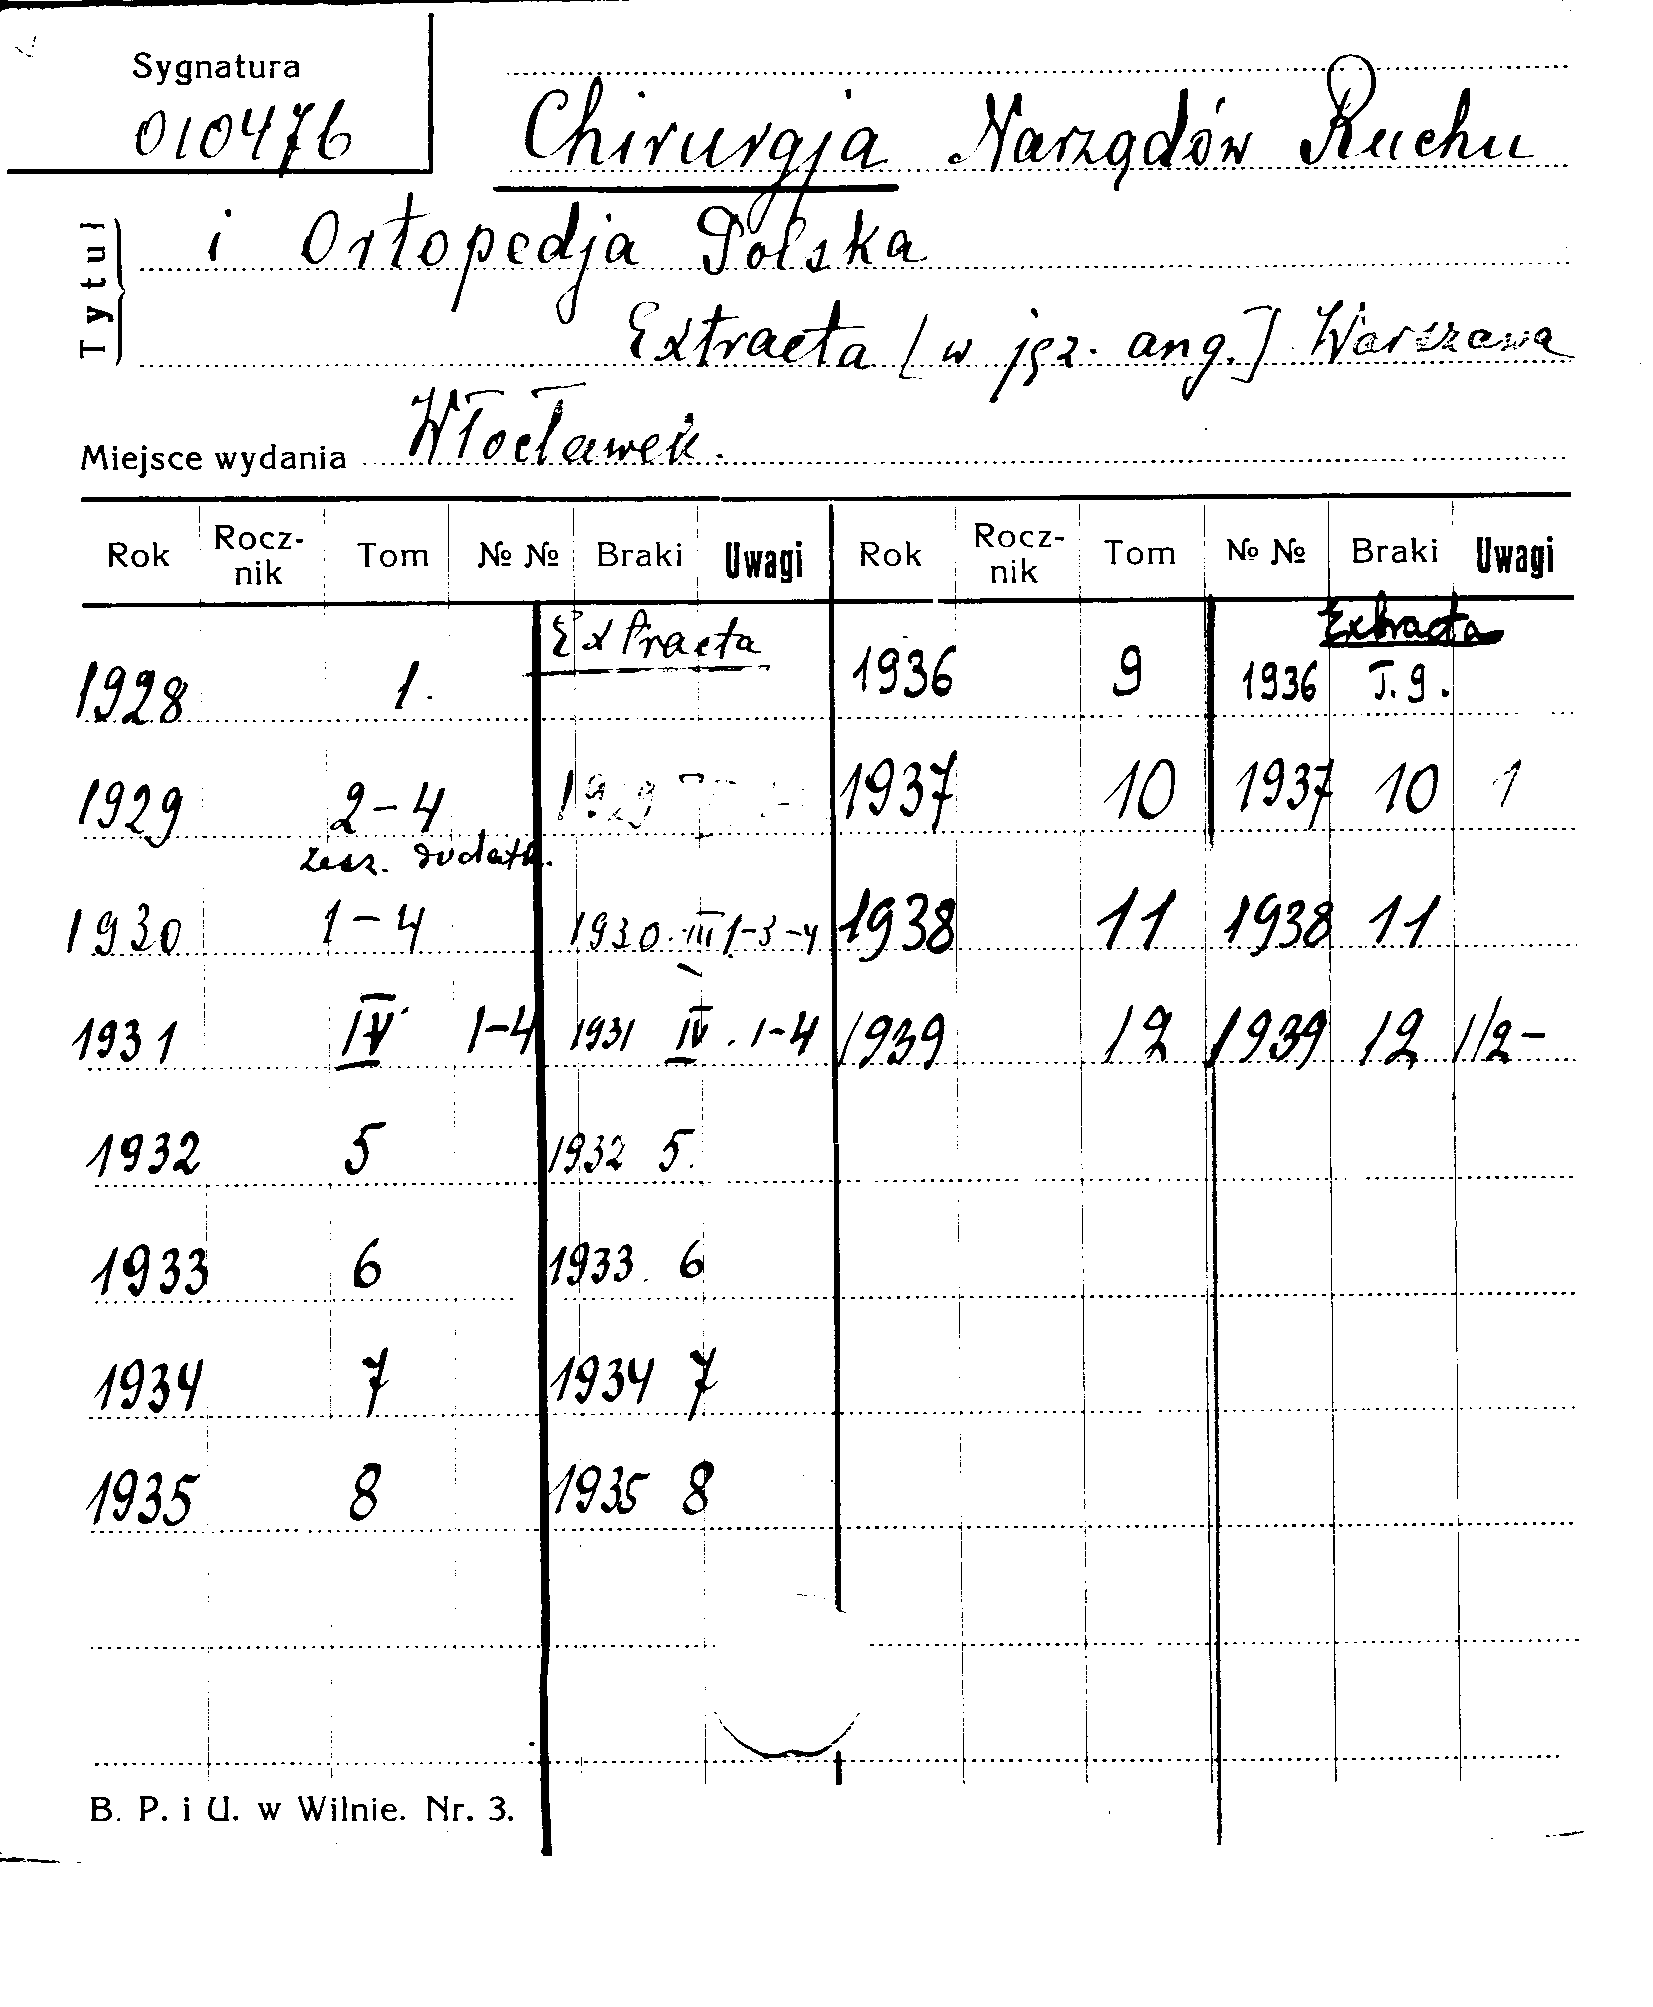 Sygnatura
010476
Chirurgja Narządów Ruchu
Tytuł
i Ortopedja Polska
Extracta [w jęz. ang.] Warszawa
Miejsce wydania Włocławek.
Rok Rocz-nik Tom № № Braki Uwagi Rok Rocz-nik Tom № № Braki Uwagi
Extracta Extracta
1928 1. 1936 9 1936 T. 9.
1929 2-4 1929 1937 10 1937 10 1
zesz. dodatk.
1930 1-4 1930 III 1-3-4 1938 11 1938 11
1931 IV 1-4 1931 IV. 1-4 1939 12 1939 12 1/2-
1932 5 1932 5.
1933 6 1933. 6
1934 7 1934 7
1935 8 1935 8
B. P. i U. w Wilnie. Nr. 3.